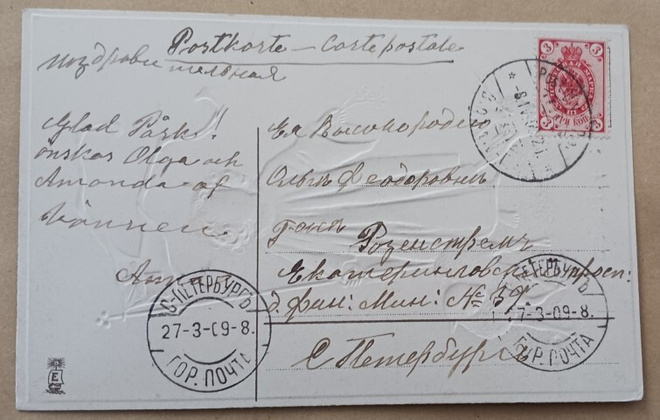 Postkarte – Carte postale
поздрави
тельная
Glad Påsk!
önskas Olga och
Amanda af
Vännen
Ея Высокородію
Ольгѣ Феодоровнѣ
Г-жѣ Розенстремъ
Екатерингофскій просп:
д. фин: Мин: № 37.
С Петербургъ
3 3
С-ПЕТЕРБУРГЪ
27-3-09-8.
ГОР. ПОЧТА
ПЕТЕРБУРГЪ
7-3-09-8.
ГОР. ПОЧТА
E